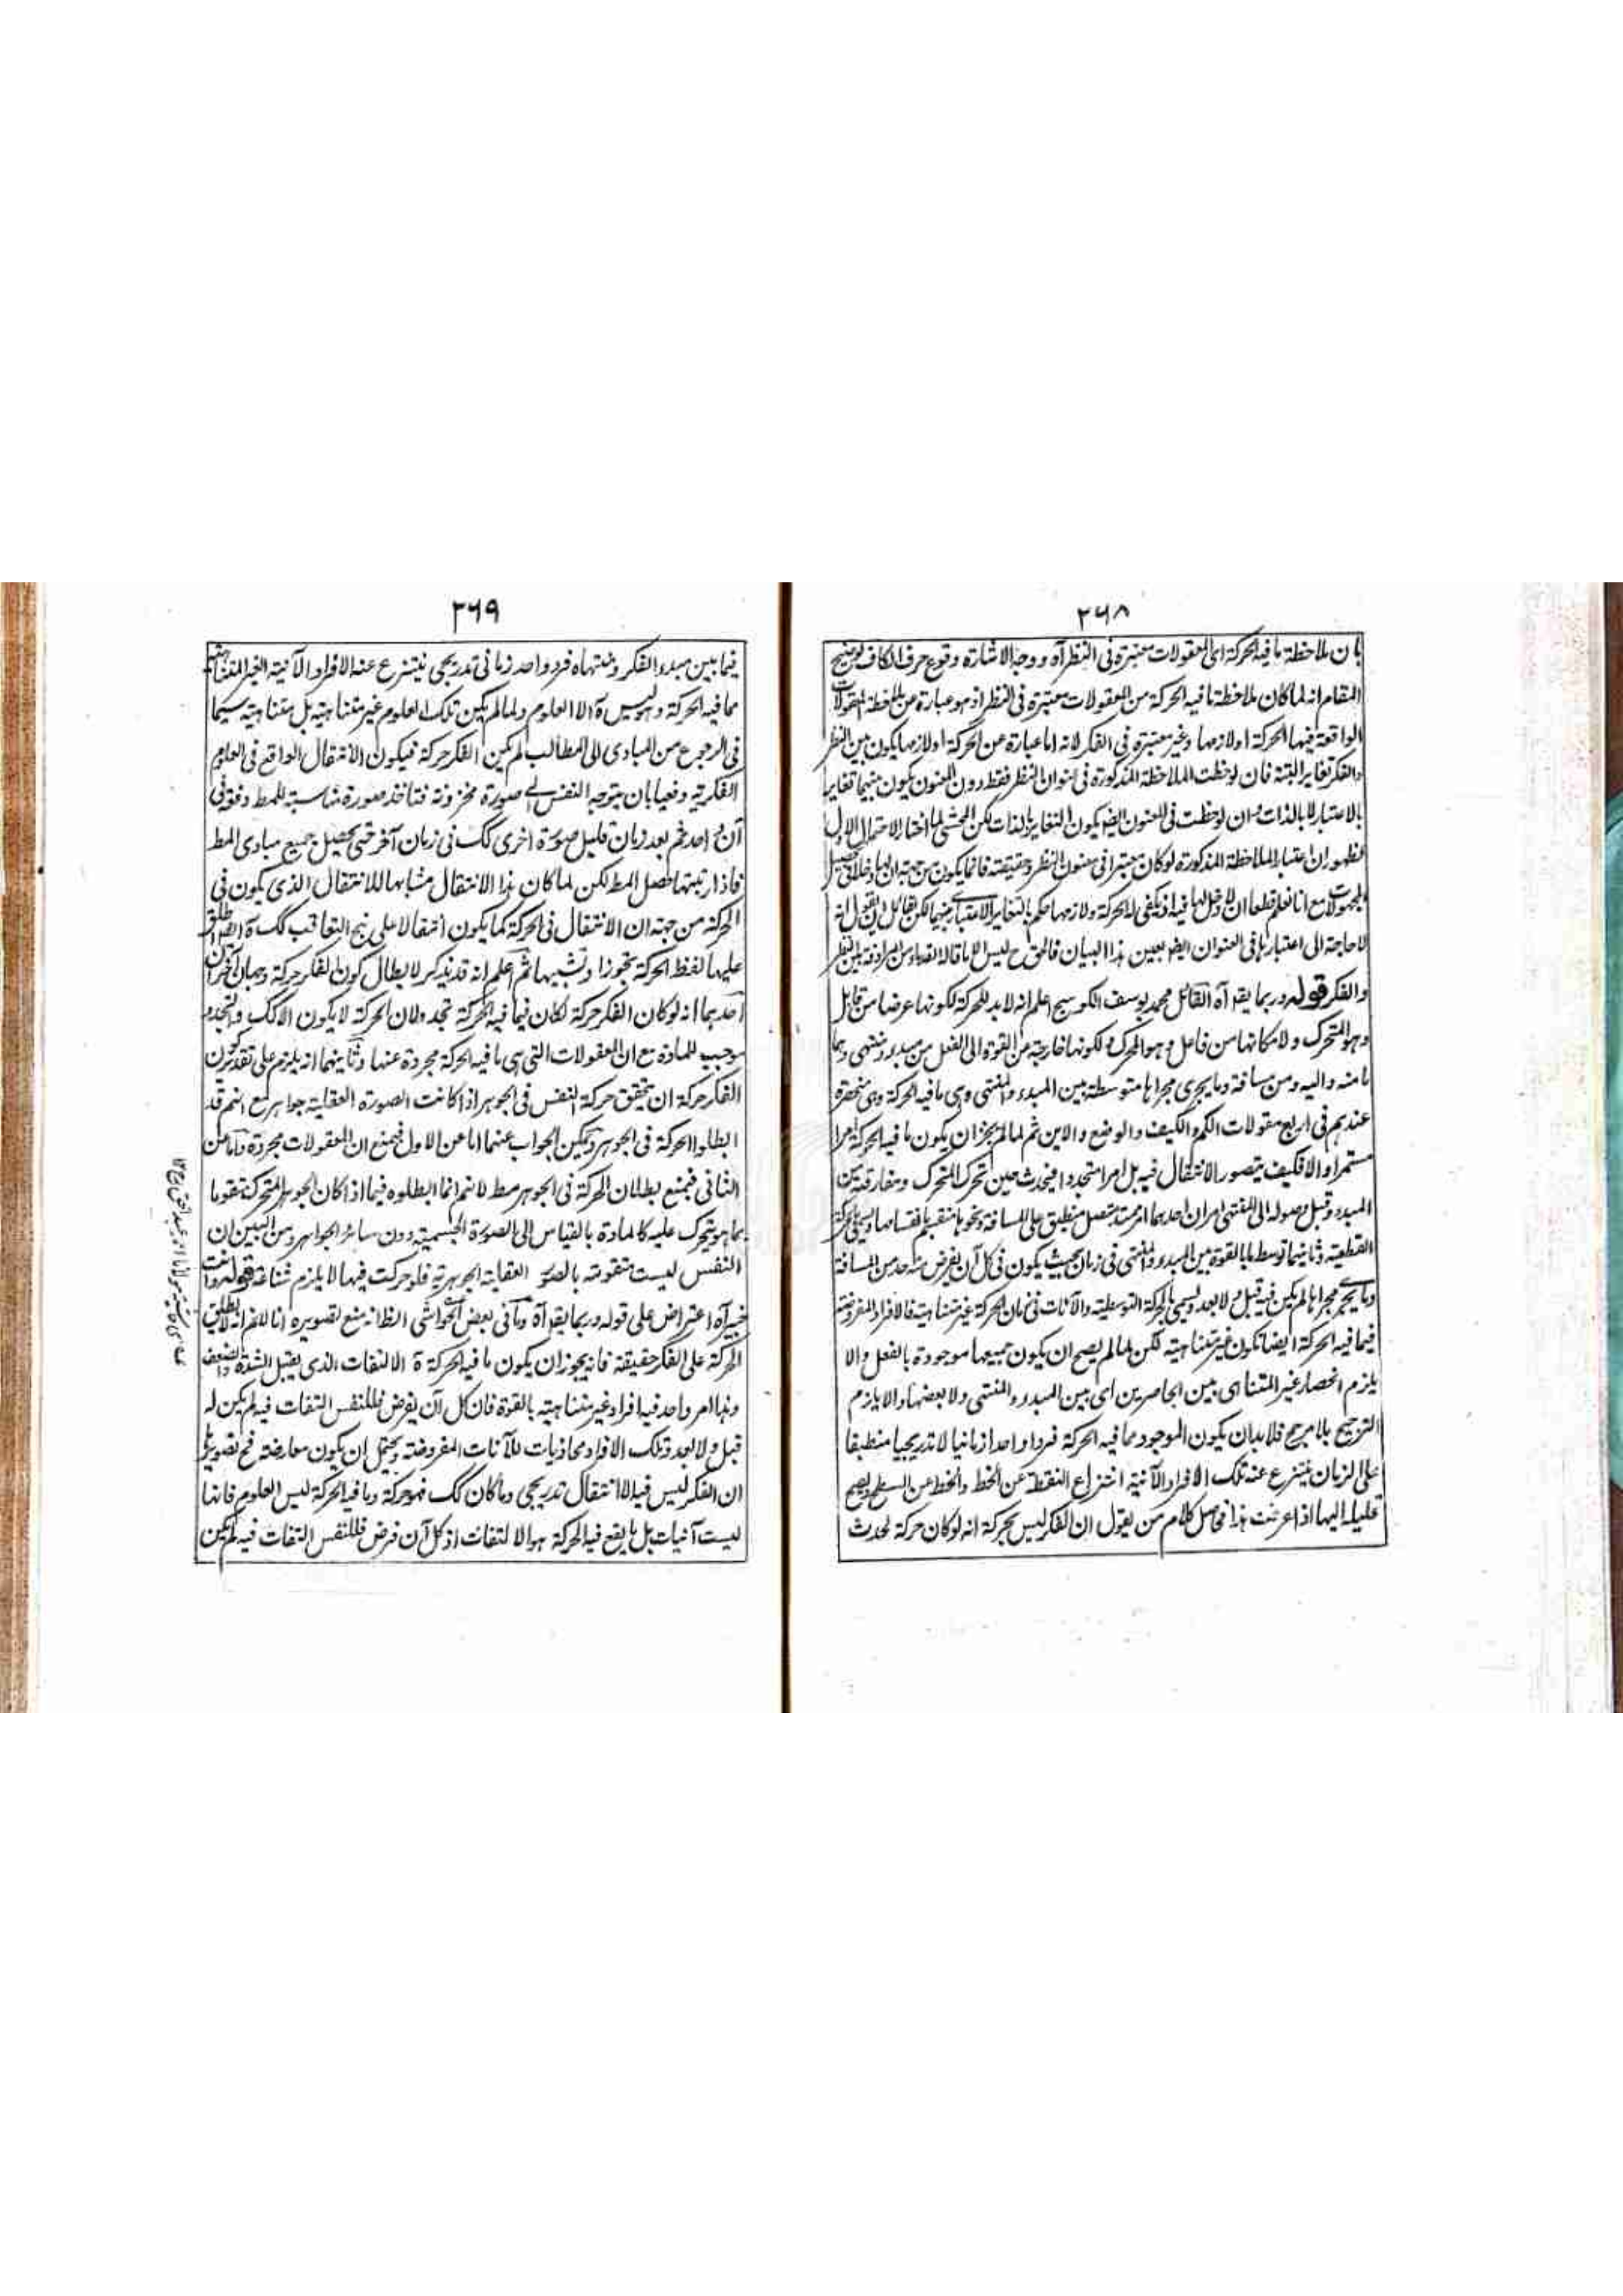 ٢٦٨
بان ملاحظة ما فيه الحركة اى المعقولات معتبرة فى النظر آه ووجه الاشارة وقوع حرف الكاف توضيح
المقام انه لما كان ملاحظة ما فيه الحركة من المعقولات معتبرة فى النظر اذ هو عبارة عن ملاحظة المعقولات
الواقعة فيها الحركة او لازمها وغير معتبرة فى الفكر لانه اما عبارة عن الحركة او لازمها يكون بين النظر
والفكر تغاير البتة فان لوحظت الملاحظة المذكورة فى عنوان النظر فقط دون المعنون يكون بينهما تغاير
بالاعتبار لا بالذات وان لوحظت فى المعنون ايضا يكون التغاير بالذات لكن المحشى لما اختار الاحتمال الاول
لظهور ان اعتبار الملاحظة المذكورة لو كان معتبرا فى معنون النظر وحقيقته فانما يكون من جهة ان لها دخلا فى تحصيل
المجهولات مع انا نعلم قطعا ان لا دخل لها فيه اذ يكفى له الحركة ولازمها حكم بالتغاير الاعتبارى بينهما لكن لقائل ان يقول انه
لا حاجة الى اعتبارها فى العنوان ايضا بعين هذا البيان فالحق ح ليس الا ما قاله القدماء من المرادفة بين النظر
والفكر قوله وربما يقرر آه القائل محمد يوسف الكوسج اعلم انه لا بد للحركة لكونها عرضا من قابل
وهو المتحرك ولامكانها من فاعل وهو المحرك ولكونها خارجة من القوة الى الفعل من مبدء ومنتهى وهما
ما منه واليه ومن مسافة وما يجرى مجراها متوسطة بين المبدء والمنتهى وهى ما فيه الحركة وهى منحصرة
عندهم فى اربع مقولات الكم والكيف والوضع والاين ثم لما لم يجز ان يكون ما فيه الحركة امرا
مستمرا والا فكيف يتصور الانتقال فيه بل امرا متجددا فيحدث حين تحرك المتحرك ومفارقته عن
المبدء وقبل وصوله الى المنتهى امران احدهما امر ممتد متصل منطبق على المسافة ونحوها منقسم بانقسامها ويسمى بالحركة
القطعية وثانيهما توسط ما بالقوة بين المبدء والمنتهى فى زمان بحيث يكون فى كل آن يفرض منه حد من المسافة
وما يجرى مجراها لم يكن فيه قبل ولا بعد ويسمى بالحركة التوسطية والآنات فى زمان الحركة غير متناهية فالافراد المفروضة
فيما فيه الحركة ايضا تكون غير متناهية لكن لما لم يصح ان يكون جميعها موجودة بالفعل والا
يلزم انحصار غير المتناهى بين الحاصرين اى بين المبدء والمنتهى ولا بعضها والا يلزم
الترجيح بلا مرجح فلا بد ان يكون الموجود مما فيه الحركة فردا واحدا زمانيا لا تدريجيا منطبقا
على الزمان ينتزع عنه تلك الافراد الآنية انتزاع النقطة عن الخط والخط عن السطح ويصح
تحليله اليها اذا عرفت هذا فحاصل كلام من يقول ان الفكر ليس بحركة انه لو كان حركة لحدث
٢٦٩
فيما بين مبدء الفكر ومنتهاه فرد واحد زمانى تدريجى ينتزع عنه الافراد الآنية الغير المتناهية
مما فيه الحركة وليس ة الا العلوم ولما لم يكن تلك العلوم غير متناهية بل متناهية سيما
فى الرجوع من المبادى الى المطالب لم يكن الفكر حركة فيكون الانتقال الواقع فى العلوم
الفكرية دفعيا بان يتوجه النفس الى صورة مخزونة فتاخذ صورة مناسبة للمط دفعة فى
آن واحد ثم بعد زمان قليل صورة اخرى كك فى زمان آخر حتى يحصل جميع مبادى المط
فاذا رتبتها حصل المط لكن لما كان هذا الانتقال مشابها للانتقال الذى يكون فى
الحركة من جهة ان الانتقال فى الحركة كما يكون انتقالا على نهج التعاقب كك ة ايضا اطلق
عليها لفظ الحركة تجوزا وتشبيها ثم اعلم انه قد يذكر لابطال كون الفكر حركة وجهان آخران
احدهما انه لو كان الفكر حركة لكان فيما فيه الحركة تجدد لان الحركة لا يكون الا كك والتجدد
موجب للمادة مع ان المعقولات التى هى ما فيه الحركة مجردة عنها وثانيهما انه يلزم على تقدير كون
الفكر حركة ان يتحقق حركة النفس فى الجوهر اذا كانت الصورة العقلية جواهر مع انهم قد
ابطلوا الحركة فى الجوهر ويمكن الجواب عنهما اما عن الاول فبمنع ان المعقولات مجردة واما عن
الثانى فبمنع بطلان الحركة فى الجوهر مط لانهم انما ابطلوه فيما اذا كان الجوهر المتحرك متقوما
بما هو يتحرك عليه كالمادة بالقياس الى الصورة الجسمية دون سائر الجواهر ومن البين ان
النفس ليست متقومة بالصور العقلية الجوهرية فلو حركت فيها لا يلزم شناعة قوله وانت
خبير آه اعتراض على قوله وربما يقرر آه وما فى بعض الحواشى الظانه منع لصويره انا لانم انه لا يطلق
الحركة على الفكر حقيقة فانه يجوز ان يكون ما فيه الحركة ة الالتفات الذى يقبل الشدة والضعف
وهذا امر واحد فيه افراد غير متناهية بالقوة فان كل آن يفرض فللنفس التفات فيه لم يكن له
قبل ولا بعد وتلك الافراد محاذيات للآنات المفروضة ويحتمل ان يكون معارضة فح تصويرها
ان الفكر ليس فيه الا انتقال تدريجى وما كان كك فهو حركة وما فيه الحركة ليس العلوم فانها
ليست آنيات بل ما يقع فيه الحركة هو الالتفات اذ كل آن فرض فللنفس التفات فيه لم يكن